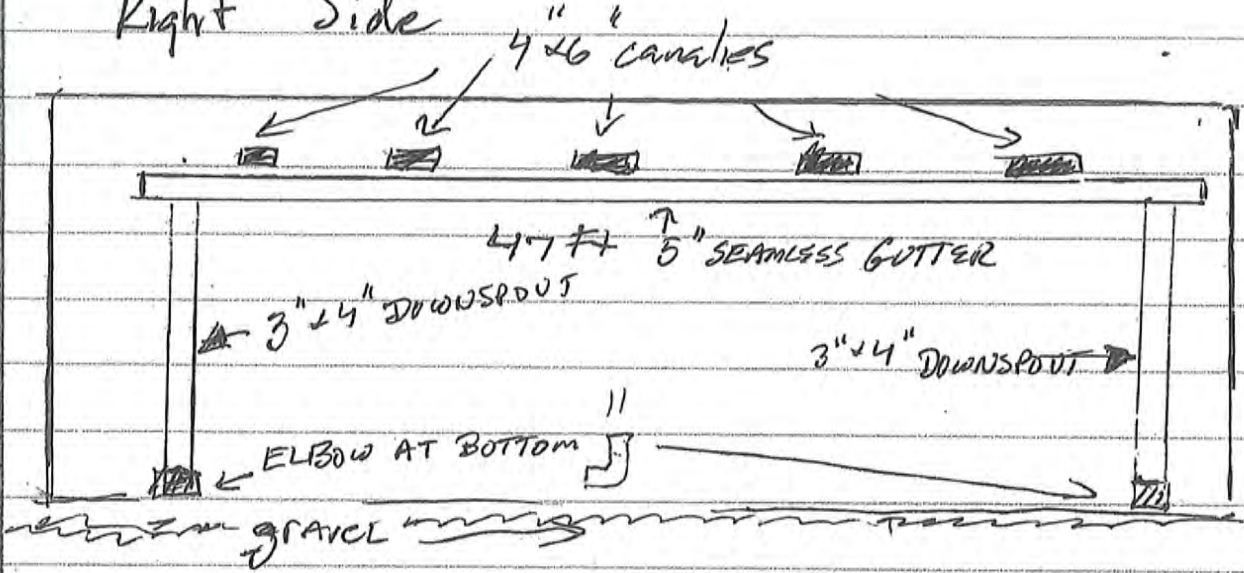 Right Side
4"x6" canales
47 ft 5" SEAMLESS GUTTER
3"x4" DOWNSPOUT
3"x4" DOWNSPOUT
ELBOW AT BOTTOM
gravel